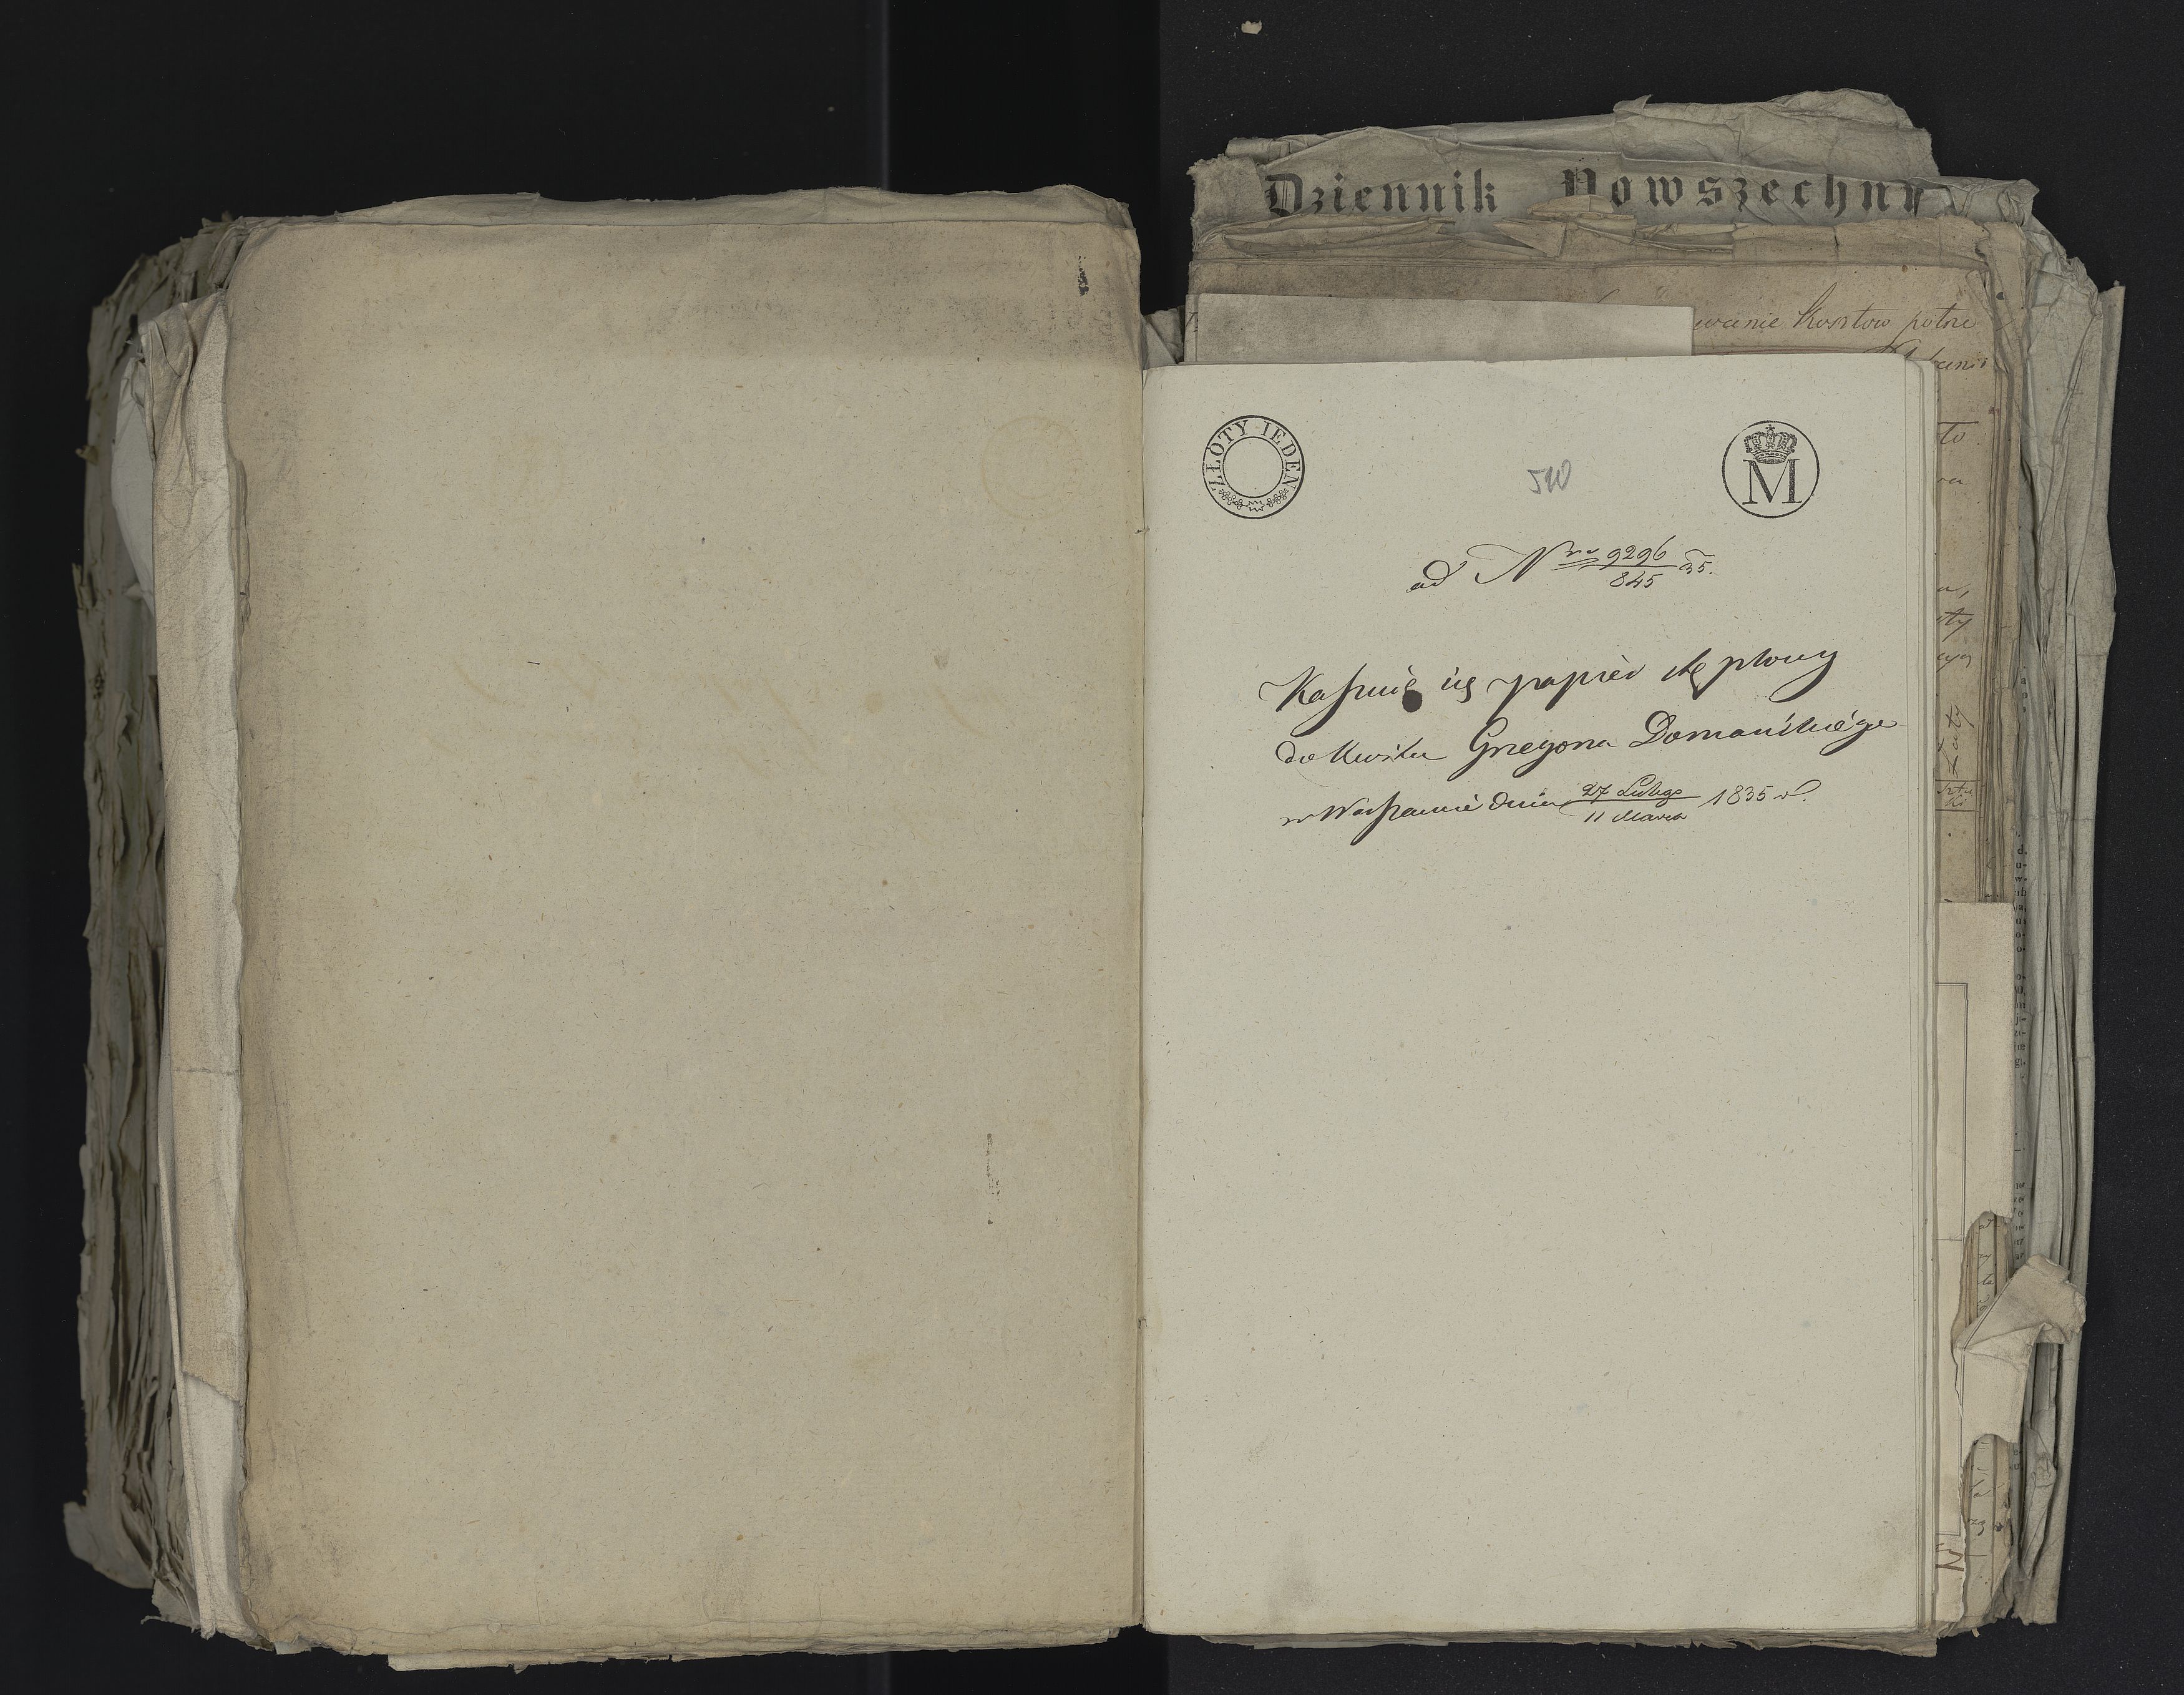 Dziennik Powszechny
wanie kosztow
ZŁOTY IEDEN
M
ad Nro 9296/845 35.
Kassuie się papier stęplowy
do kwitu Grzegorza Domańskiego
w Warszawie dnia 27 Lutego/11 Marca 1835 r.